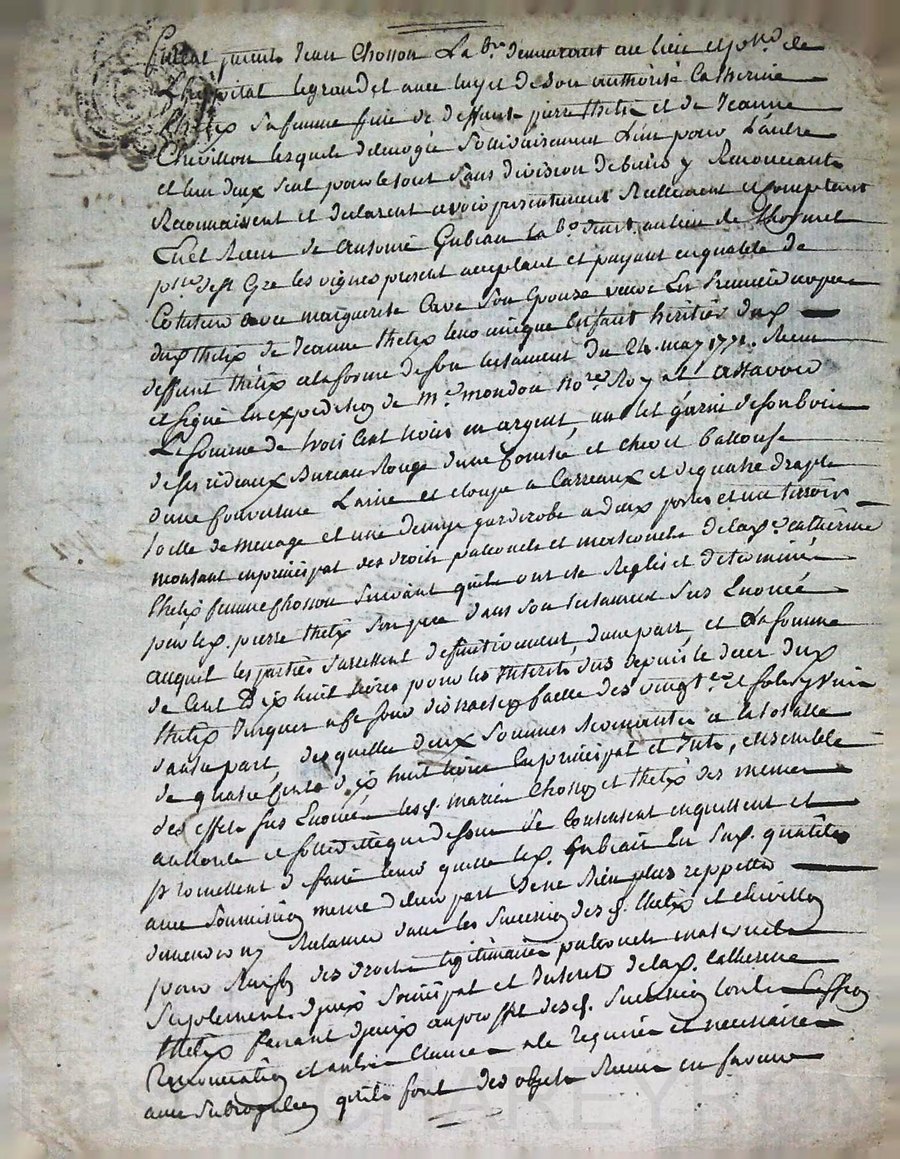 furent présents Jean Chosson La.br demeurant au lieu et psse de
L'hopital legrand et avec luy et de son authorité Catherine
thelix sa femme fille de deffunt pierre thelix et de Jeanne
Chevillon lesquels de leur gré solidairement L'un pour L'autre
et lun deux seul pour le tout sans division de biens y Renonceants
Reconnaissent et declarent avoir presentement Reellement et comptant
Eu et Receu de Antoine Gubian La.br demt. au lieu de
psse de st Cyre les vignes present acceptant et payant en qualité de
Cotuteur avec marguerite Cave son Epouze veuve En premiere nopce
dud thelix de Jeanne thelix leur unique Enfant heritier dud
deffunt thelix a la forme de son testament du 24. may 1771. Receu
et signé En expedition de Me mondon nore Royal, assavoir
La somme de trois Cent livres en argent, un lit garni de son bois
de ses rideaux Bureau Rouge d'une et chevet
d'une Couverture Laine et a Carreaux et de quatre draps
toille de menage et une garderobe a deux portes et un
montant en principal des droits paternels et maternels de lad. Catherine
thelix femme Chosson suivant qu'ils ont été Reglés et determiné
par led. pierre thelix son pere dans son testament sus Enoncé
auquel les parties s'arrestent definitivement, d'une part, et La somme
de Cent Dix huit livres pour les Interets dus depuis le deces dud
thelix Jusques a ce jour distraction faitte des vingt.es et
d'autre part, desquelles deux sommes Revenantes a la totalle
de quatre Cents dix huit livres En principal et Intts, ensemble
des effets sus Enoncés lesd. mariés Chosson et thelix des memes
authorité et solidité que dessus se Contentent en quittent et
promettent d faire tenir quitte led. Gubian En sud. qualités
avec soumission meme de leur part de ne Rien plus Reppetter
demander ny Rechercher dans les succession des d. thelix et Chevillon
pour Raison des droits legitimaires paternels maternels
suplement d'yceux principal et Interets de lad. Catherine
thelix faisant d'yceux aujourd'hy desd. succession toutes Cession
Renonciation et autres Clauses a le Requises et necessaires
avec subrogation qu'ils font des objets Receus en faveur